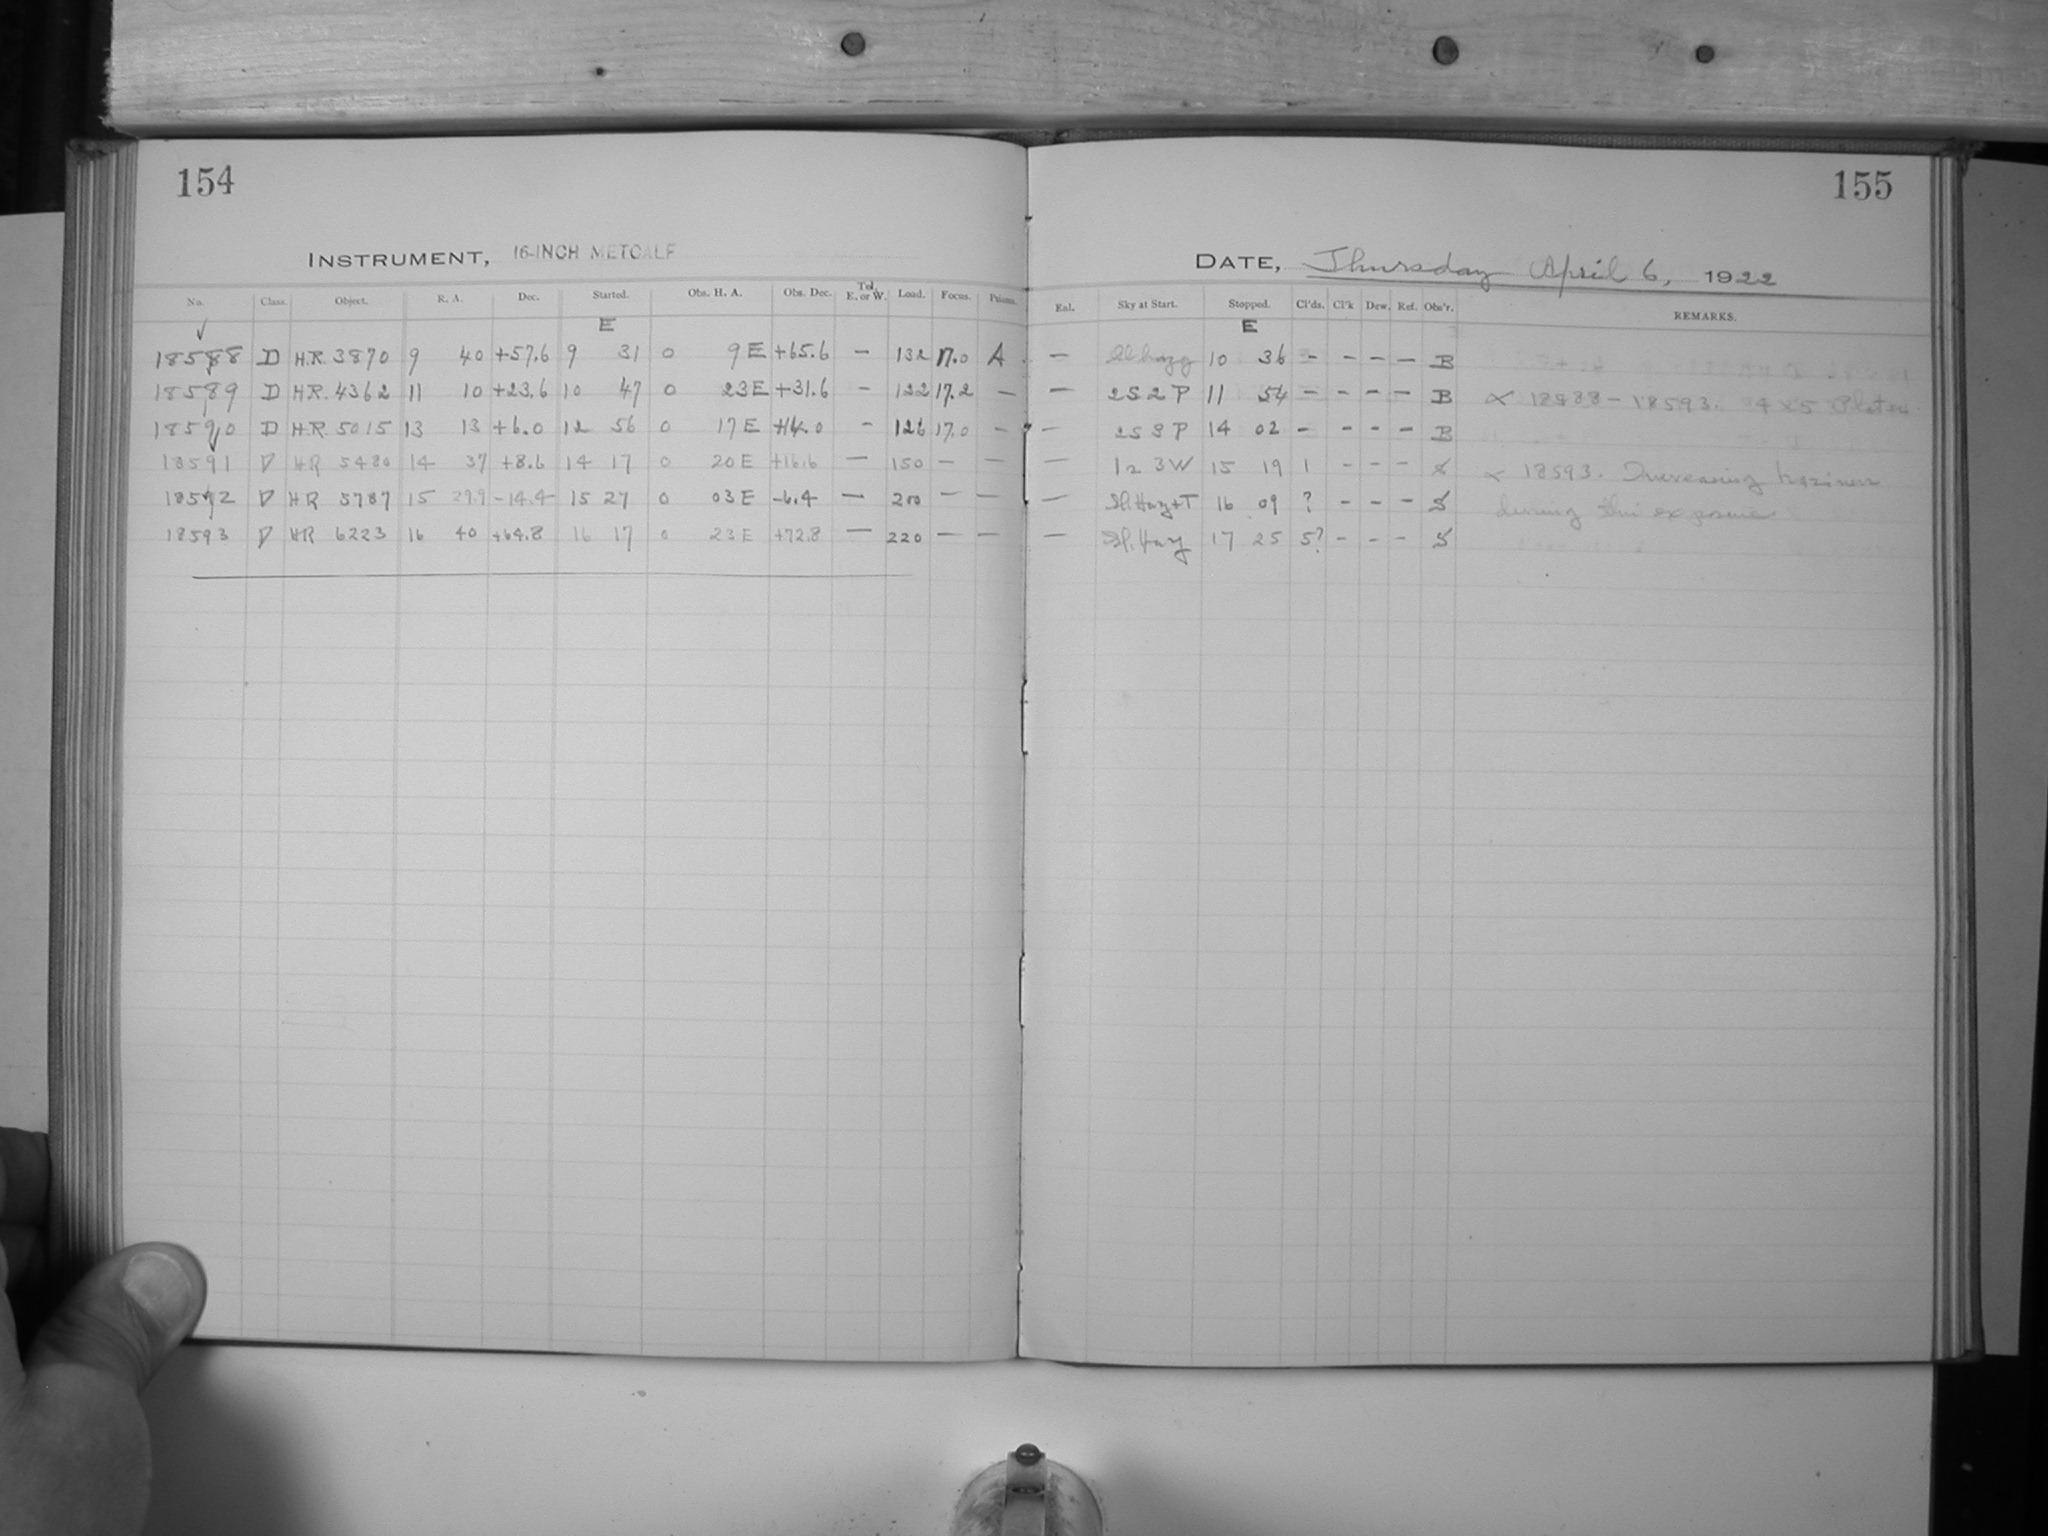 154
155
INSTRUMENT, 16-INCH METCALF
DATE, Thursday April 6, 1922
No. Class. Object. R. A. Dec. Started. Obs. H. A. Obs. Dec. Tel. E. or W. Load. Focus. Prisms. Eal. Sky at Start. Stopped. Cl'ds. Cl'k Dew. Ref. Obs'r. REMARKS.
E E
18588 D H.R. 3870 9 40 +57.6 9 31 0 9 E +65.6 – 132 17.0 A – Sl hazy 10 36 – – – – B
18589 D H.R. 4362 11 10 +23.6 10 47 0 23 E +31.6 – 122 17.2 – – 2S2P 11 54 – – – – B α 18588 – 18593. 4 x 5 Plates.
18590 D H.R. 5015 13 13 +6.0 12 56 0 17 E +14.0 – 126 17.0 – – 2S3P 14 02 – – – – B
18591 D HR 5480 14 37 +8.6 14 17 0 20 E +16.6 – 150 – – – 1n 3W 15 19 1 – – – S α 18593. Increasing haziness
18592 D HR 5787 15 29.9 -14.4 15 27 0 03 E -6.4 – 200 – – – Sl. Hazy+T 16 09 ? – – – S during this exposure
18593 D HR 6223 16 40 +64.8 16 17 0 23 E +72.8 – 220 – – – Sl. Hazy 17 25 5? – – – S